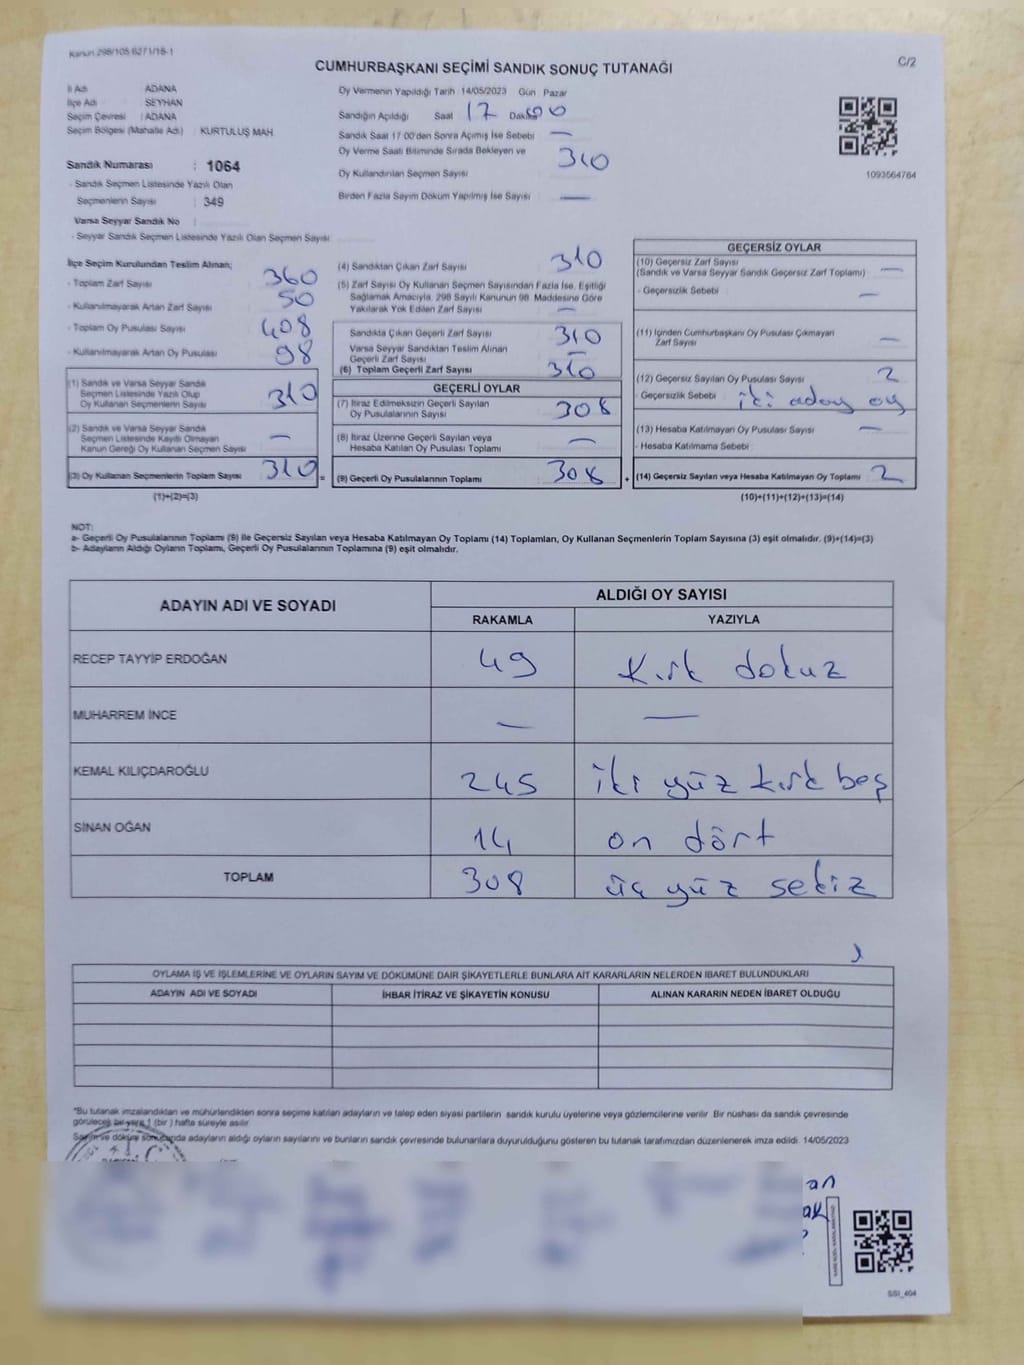 Kanun 298/105 6271/16-1
C/2
CUMHURBAŞKANI SEÇİMİ SANDIK SONUÇ TUTANAĞI
İl Adı : ADANA
İlçe Adı : SEYHAN
Seçim Çevresi : ADANA
Seçim Bölgesi (Mahalle Adı) : KURTULUŞ MAH.
Sandık Numarası : 1064
- Sandık Seçmen Listesinde Yazılı Olan
Seçmenlerin Sayısı : 349
Varsa Seyyar Sandık No :
- Seyyar Sandık Seçmen Listesinde Yazılı Olan Seçmen Sayısı :
Oy Vermenin Yapıldığı Tarih 14/05/2023 Gün Pazar
Sandığın Açıldığı Saat 17 Dakika 00
Sandık Saat 17:00'den Sonra Açılmış İse Sebebi —
Oy Verme Saati Bitiminde Sırada Bekleyen ve
Oy Kullandırılan Seçmen Sayısı 310
Birden Fazla Sayım Döküm Yapılmış İse Sayısı —
1093564764
İlçe Seçim Kurulundan Teslim Alınan;
- Toplam Zarf Sayısı 360
- Kullanılmayarak Artan Zarf Sayısı 50
- Toplam Oy Pusulası Sayısı 408
- Kullanılmayarak Artan Oy Pusulası 98
(1) Sandık ve Varsa Seyyar Sandık
Seçmen Listesinde Yazılı Olup
Oy Kullanan Seçmenlerin Sayısı 310
(2) Sandık ve Varsa Seyyar Sandık
Seçmen Listesinde Kayıtlı Olmayan
Kanun Gereği Oy Kullanan Seçmen Sayısı —
(3) Oy Kullanan Seçmenlerin Toplam Sayısı 310 =
(1)+(2)=(3)
(4) Sandıktan Çıkan Zarf Sayısı 310
(5) Zarf Sayısı Oy Kullanan Seçmen Sayısından Fazla İse, Eşitliği
Sağlamak Amacıyla, 298 Sayılı Kanunun 98. Maddesine Göre
Yakılarak Yok Edilen Zarf Sayısı —
Sandıkta Çıkan Geçerli Zarf Sayısı 310
Varsa Seyyar Sandıktan Teslim Alınan
Geçerli Zarf Sayısı —
(6) Toplam Geçerli Zarf Sayısı 310
GEÇERLİ OYLAR
(7) İtiraz Edilmeksizin Geçerli Sayılan
Oy Pusulalarının Sayısı 308
(8) İtiraz Üzerine Geçerli Sayılan veya
Hesaba Katılan Oy Pusulası Toplamı —
(9) Geçerli Oy Pusulalarının Toplamı 308 +
GEÇERSİZ OYLAR
(10) Geçersiz Zarf Sayısı
(Sandık ve Varsa Seyyar Sandık Geçersiz Zarf Toplamı) —
- Geçersizlik Sebebi : —
(11) İçinden Cumhurbaşkanı Oy Pusulası Çıkmayan
Zarf Sayısı —
(12) Geçersiz Sayılan Oy Pusulası Sayısı 2
- Geçersizlik Sebebi : iki aday oy
(13) Hesaba Katılmayan Oy Pusulası Sayısı —
- Hesaba Katılmama Sebebi :
(14) Geçersiz Sayılan veya Hesaba Katılmayan Oy Toplamı 2
(10)+(11)+(12)+(13)=(14)
NOT:
a- Geçerli Oy Pusulalarının Toplamı (9) ile Geçersiz Sayılan veya Hesaba Katılmayan Oy Toplamı (14) Toplamları, Oy Kullanan Seçmenlerin Toplam Sayısına (3) eşit olmalıdır. (9)+(14)=(3)
b- Adayların Aldığı Oyların Toplamı, Geçerli Oy Pusulalarının Toplamına (9) eşit olmalıdır.
ADAYIN ADI VE SOYADI
ALDIĞI OY SAYISI
RAKAMLA YAZIYLA
RECEP TAYYİP ERDOĞAN 49 Kırk dokuz
MUHARREM İNCE — —
KEMAL KILIÇDAROĞLU 245 iki yüz kırk beş
SİNAN OĞAN 14 on dört
TOPLAM 308 üç yüz sekiz
OYLAMA İŞ VE İŞLEMLERİNE VE OYLARIN SAYIM VE DÖKÜMÜNE DAİR ŞİKAYETLERLE BUNLARA AİT KARARLARIN NELERDEN İBARET BULUNDUKLARI
ADAYIN ADI VE SOYADI İHBAR İTİRAZ VE ŞİKAYETİN KONUSU ALINAN KARARIN NEDEN İBARET OLDUĞU
*Bu tutanak imzalandıktan ve mühürlendikten sonra seçime katılan adayların ve talep eden siyasi partilerin sandık kurulu üyelerine veya gözlemcilerine verilir. Bir nüshası da sandık çevresinde
görülecek bir yere 1 (bir ) hafta süreyle asılır.
Sayım ve döküm sonucunda adayların aldığı oyların sayılarını ve bunların sandık çevresinde bulunanlara duyurulduğunu gösteren bu tutanak tarafımızdan düzenlenerek imza edildi. 14/05/2023
an
ak
SSI_404